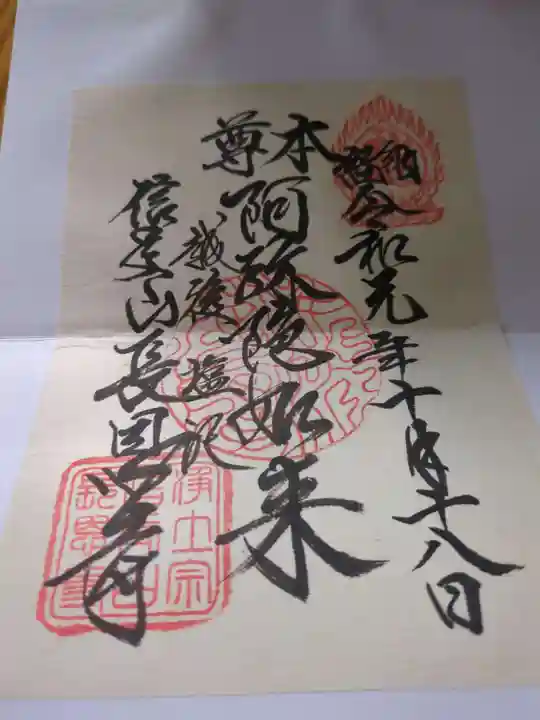 納経
令和元年十月十八日
本尊
阿弥陀如来
越後塩沢
信楽山長恩寺
浄土宗